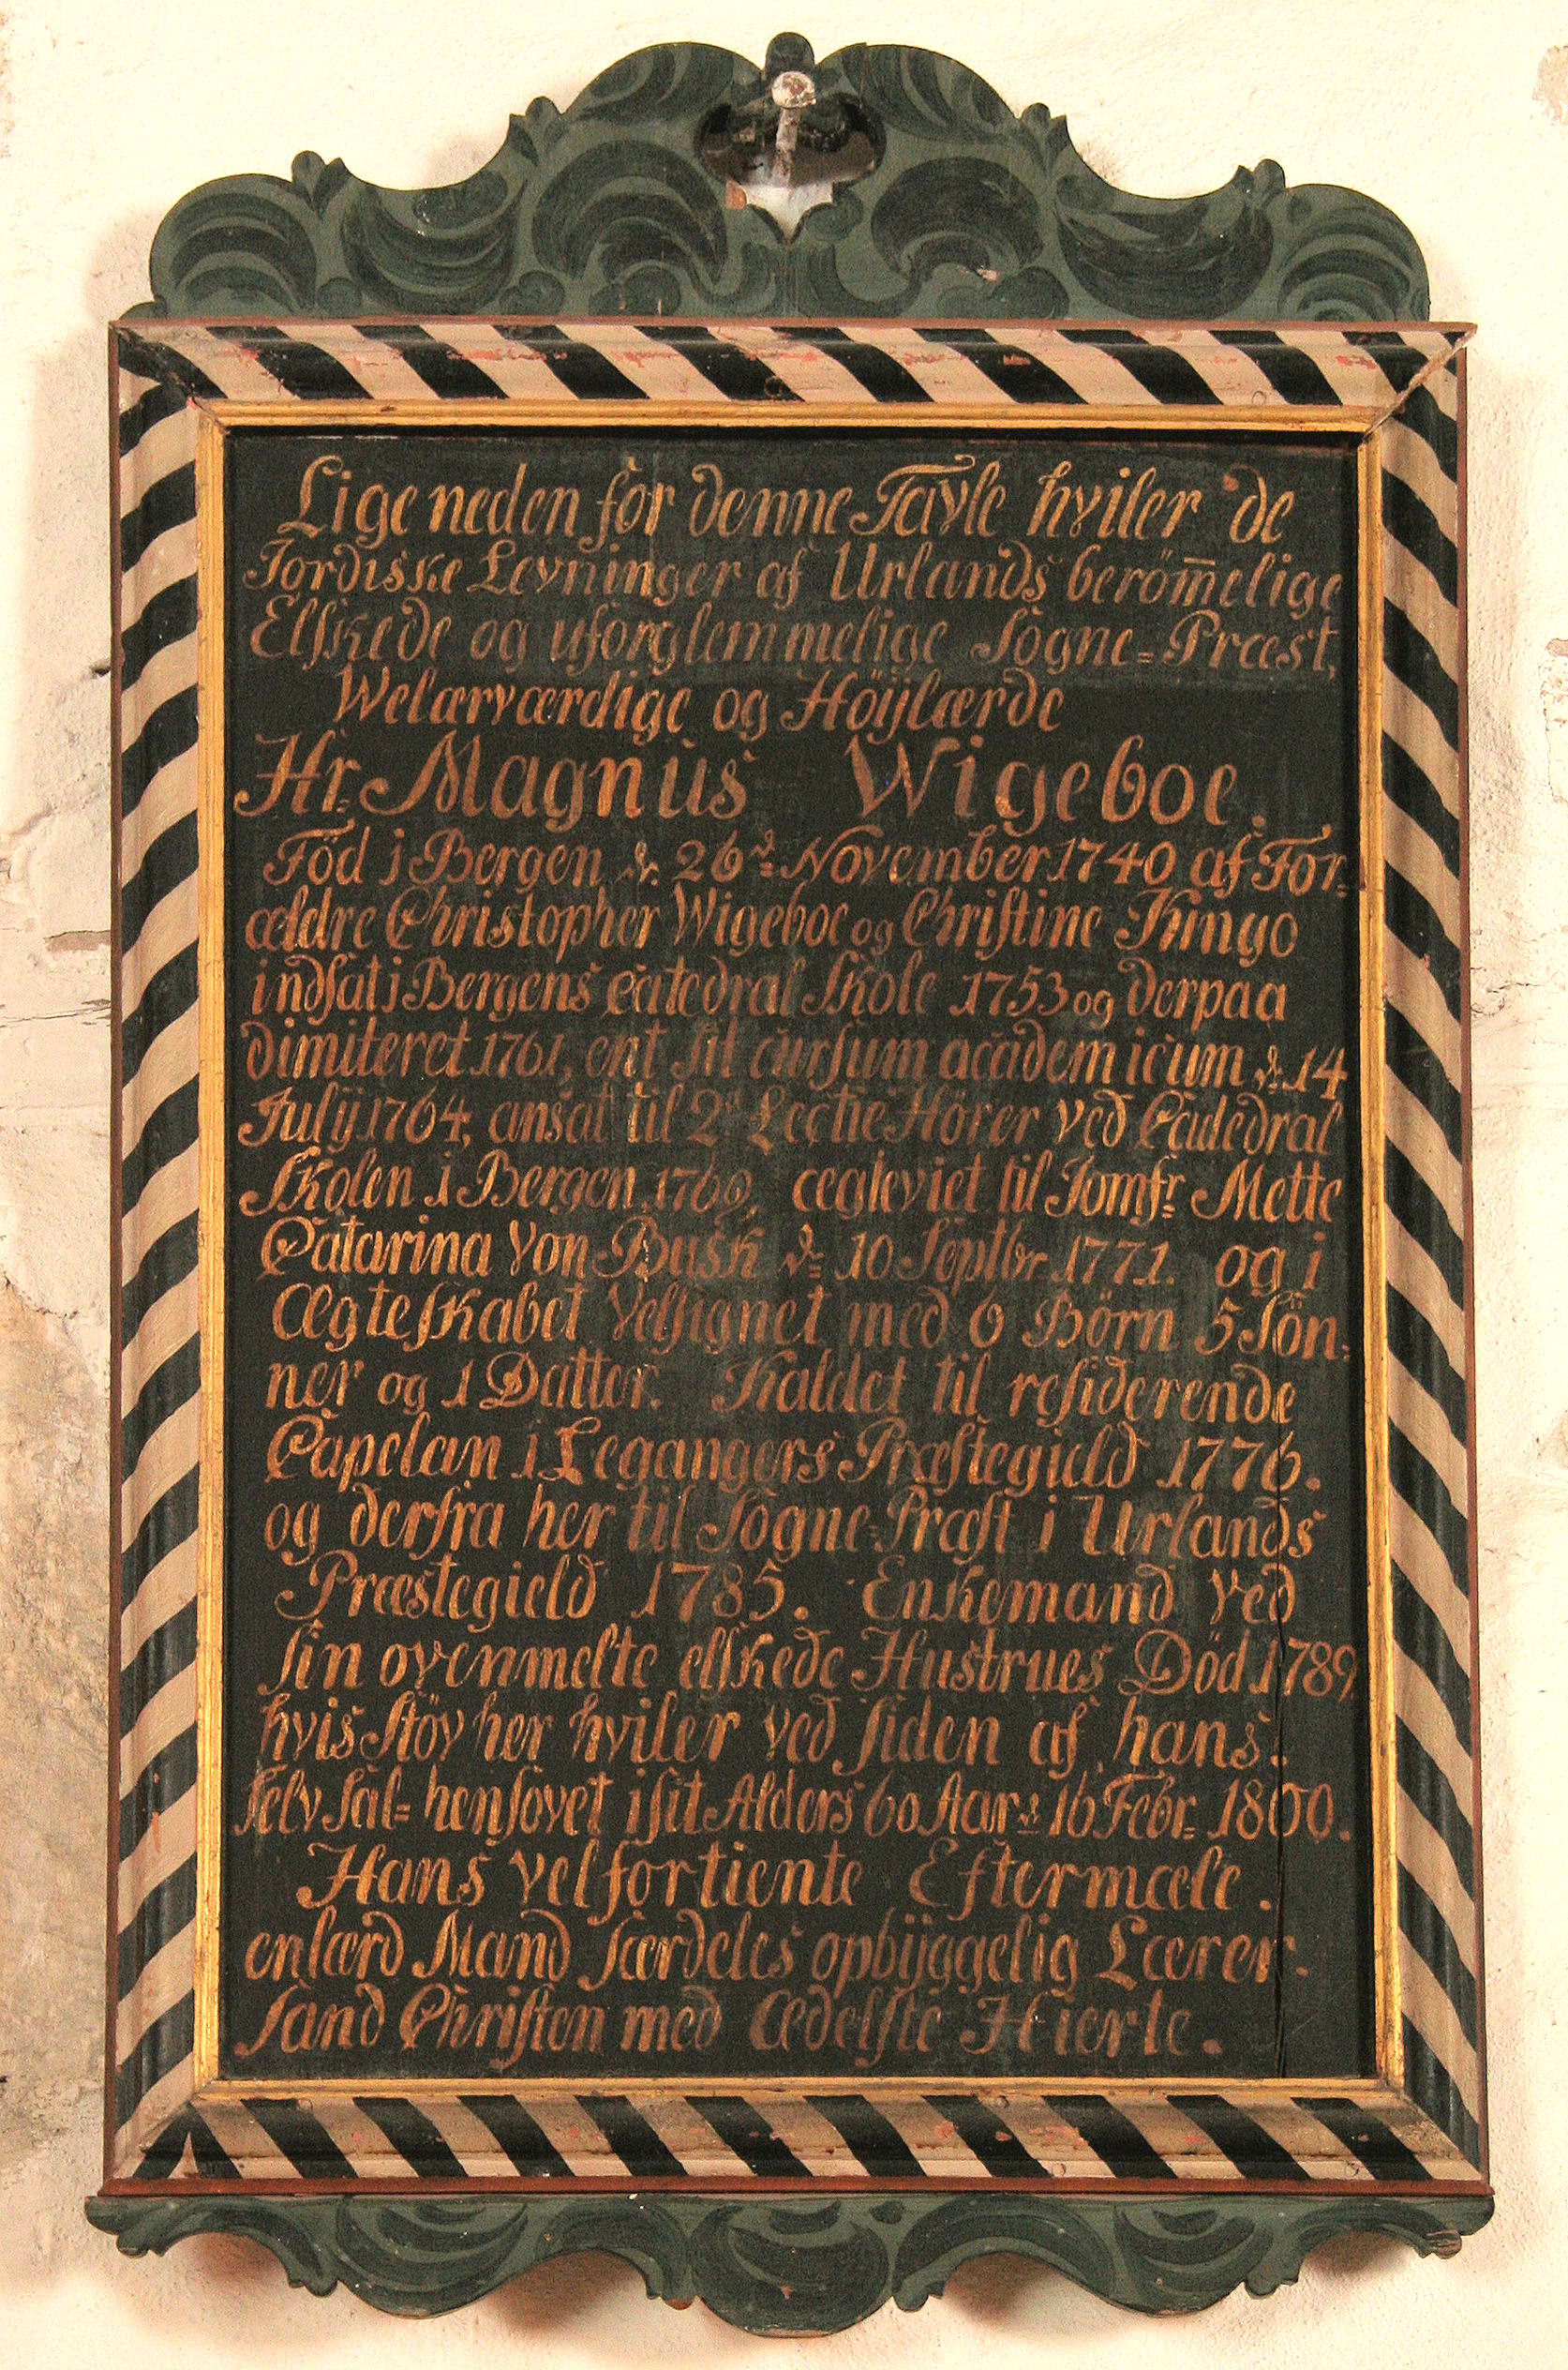 Lige neden for denne Tavle hviler de
Jordiske Levninger af Urlands beröm̅elige
Elskede og uforglemmelige Sogne=Præst,
Welærværdige og Höijlærde
Hr. Magnus Wigeboe.
Föd i Bergen d. 26d. November 1740 af For=
ældre Christopher Wigeboe og Christine Kingo
indsat i Bergens Catedral Skole 1753 og derpaa
dimiteret 1761, ent sit cursum academicum d. 14
Julij 1764, ansat til 2d Lectie Hörer ved Catedral
Skolen i Bergen 1769, ægteviet til Jomfr. Mette
Catarina von Busk d. 10 Septbr. 1771. og i
Ægteskabet Velsignet med 6 Börn 5 Sön=
ner og 1 Datter. Kaldet til residerende
Capelan i Legangers Præstegield 1776.
og derfra her til Sogne=Præst i Urlands
Præstegield 1785. Enkemand ved
sin ovenmelte elskede Hustrues Död 1789
hvis Stöv her hviler ved siden af hans.
selv Sal= hensovet i sit Alders 60 Aar d. 16 Febr. 1800.
Hans velfortiente Eftermæle.
en lærd Mand særdeles opbijggelig Lærer.
sand Christen med ædelste Hierte.